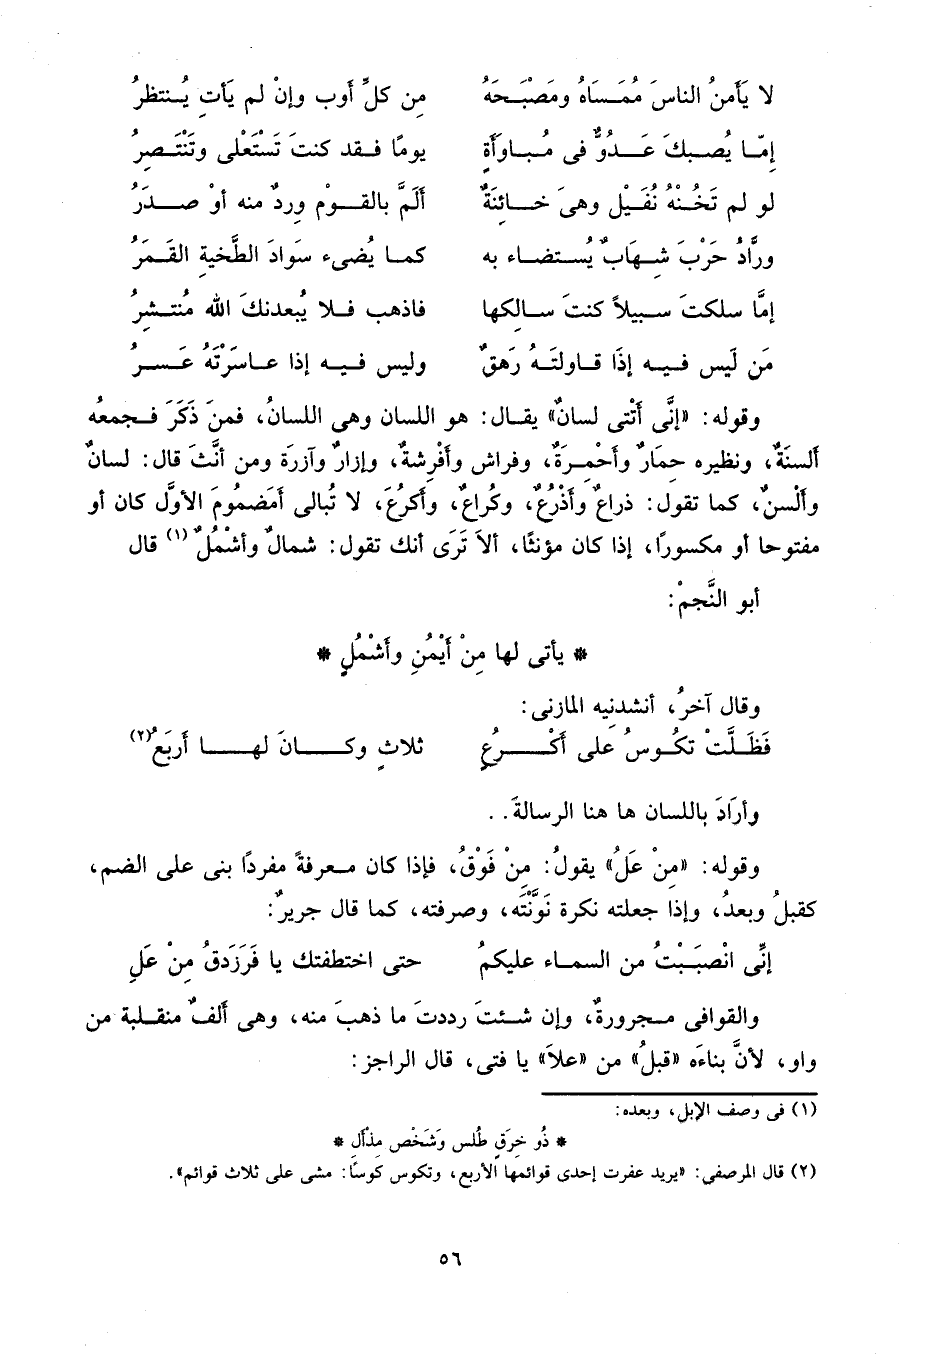 لا يَأمنُ الناسَ مُمَسَاهُ ومَصْبَحَهُ من كلِّ أوب وإنْ لم يَأتِ يُنتظرُ
إمّا يُصبكَ عَدوٌّ فى مُباوَأةٍ يومًا فقد كنتَ تَسْتَعْلى وتَنْتَصِرُ
لو لم تَخُنْهُ نُفَيْل وهىَ خائنَةٌ أَلَمَّ بالقومْ وردٌ منه أوْ صدَرُ
ورَّادُ حَرْبَ شهابٌ يُستضاء به كما يُضىء سَوَادَ الطَّخيةِ القَمَرُ
إمَّا سلكتَ سبيلاً كنتَ سالِكها فاذهب فلا يُبعدنكَ الله مُنتشِرُ
مَن لَيس فيه إذَا قاولتَهُ رَهقٌ وليس فيه إذا عاسَرْتَهُ عَسرُ
وقوله: «إنَّى أتَتْنى لسانٌ» يقال: هو اللسان وهى اللسانُ، فمنَ ذَكَرَ فجمعُه
ألسنَةٌ، ونظيره حمَارٌ وأَحْمِرَةٌ، وفراش وأَفْرِشةٌ، وإزارٌ وآزرة ومن أنَّثَ قال: لسانٌ
وأَلْسنٌ، كما تقول: ذراعٌ وأَذْرُعٌ، وكُراعٌ، وأكرُعَ، لا تُبالى أمَضمُومَ الأوَّل كان أو
مفتوحا أو مكسورًا، إذا كان مؤنثًا، ألاَ تَرَى أنك تقول: شمالٌ وأشْمُلٌ (١) قال
أبو النَّجمْ:
* يأتى لها مِنْ أَيْمُنِ وأَشْمُلٍ *
وقال آخرُ، أنشدنيه المازنى:
فَظَلَّتْ تكُوسُ على أكْرُعٍ ثلاثٍ وكانَ لها أربَعُ (٢)
وأرَادَ باللسان ها هنا الرسالةَ..
وقوله: «مِنْ عَلُ» يقولُ: مِنْ فَوْقُ، فإذا كان معرفةً مفردًا بنى على الضم،
كقبلُ وبعدُ، وإذا جعلته نكرة نَوَّنْتَه، وصرفته، كما قال جريرٌ:
إنِّى انْصبَبْتُ من السماء عليكمُ حتى اختطفتك يا فَرَزَدقُ مِنْ عَلِ
والقوافى مجرورةٌ، وإن شئتَ رددتَ ما ذهبَ منه، وهى أَلفٌ منقلبة من
واو، لأنَّ بناءَه «قبلُ» من «علاَ» يا فتى، قال الراجز:
(١) فى وصف الإبل، وبعده:
* ذُو خِرَقٍ طُلس وَشَخْص مذأل *
(٢) قال المرصفى: «يريد عفرت إحدى قوائمها الأربع، وتكوس كوسًا: مشى على ثلاث قوائم».
٥٦